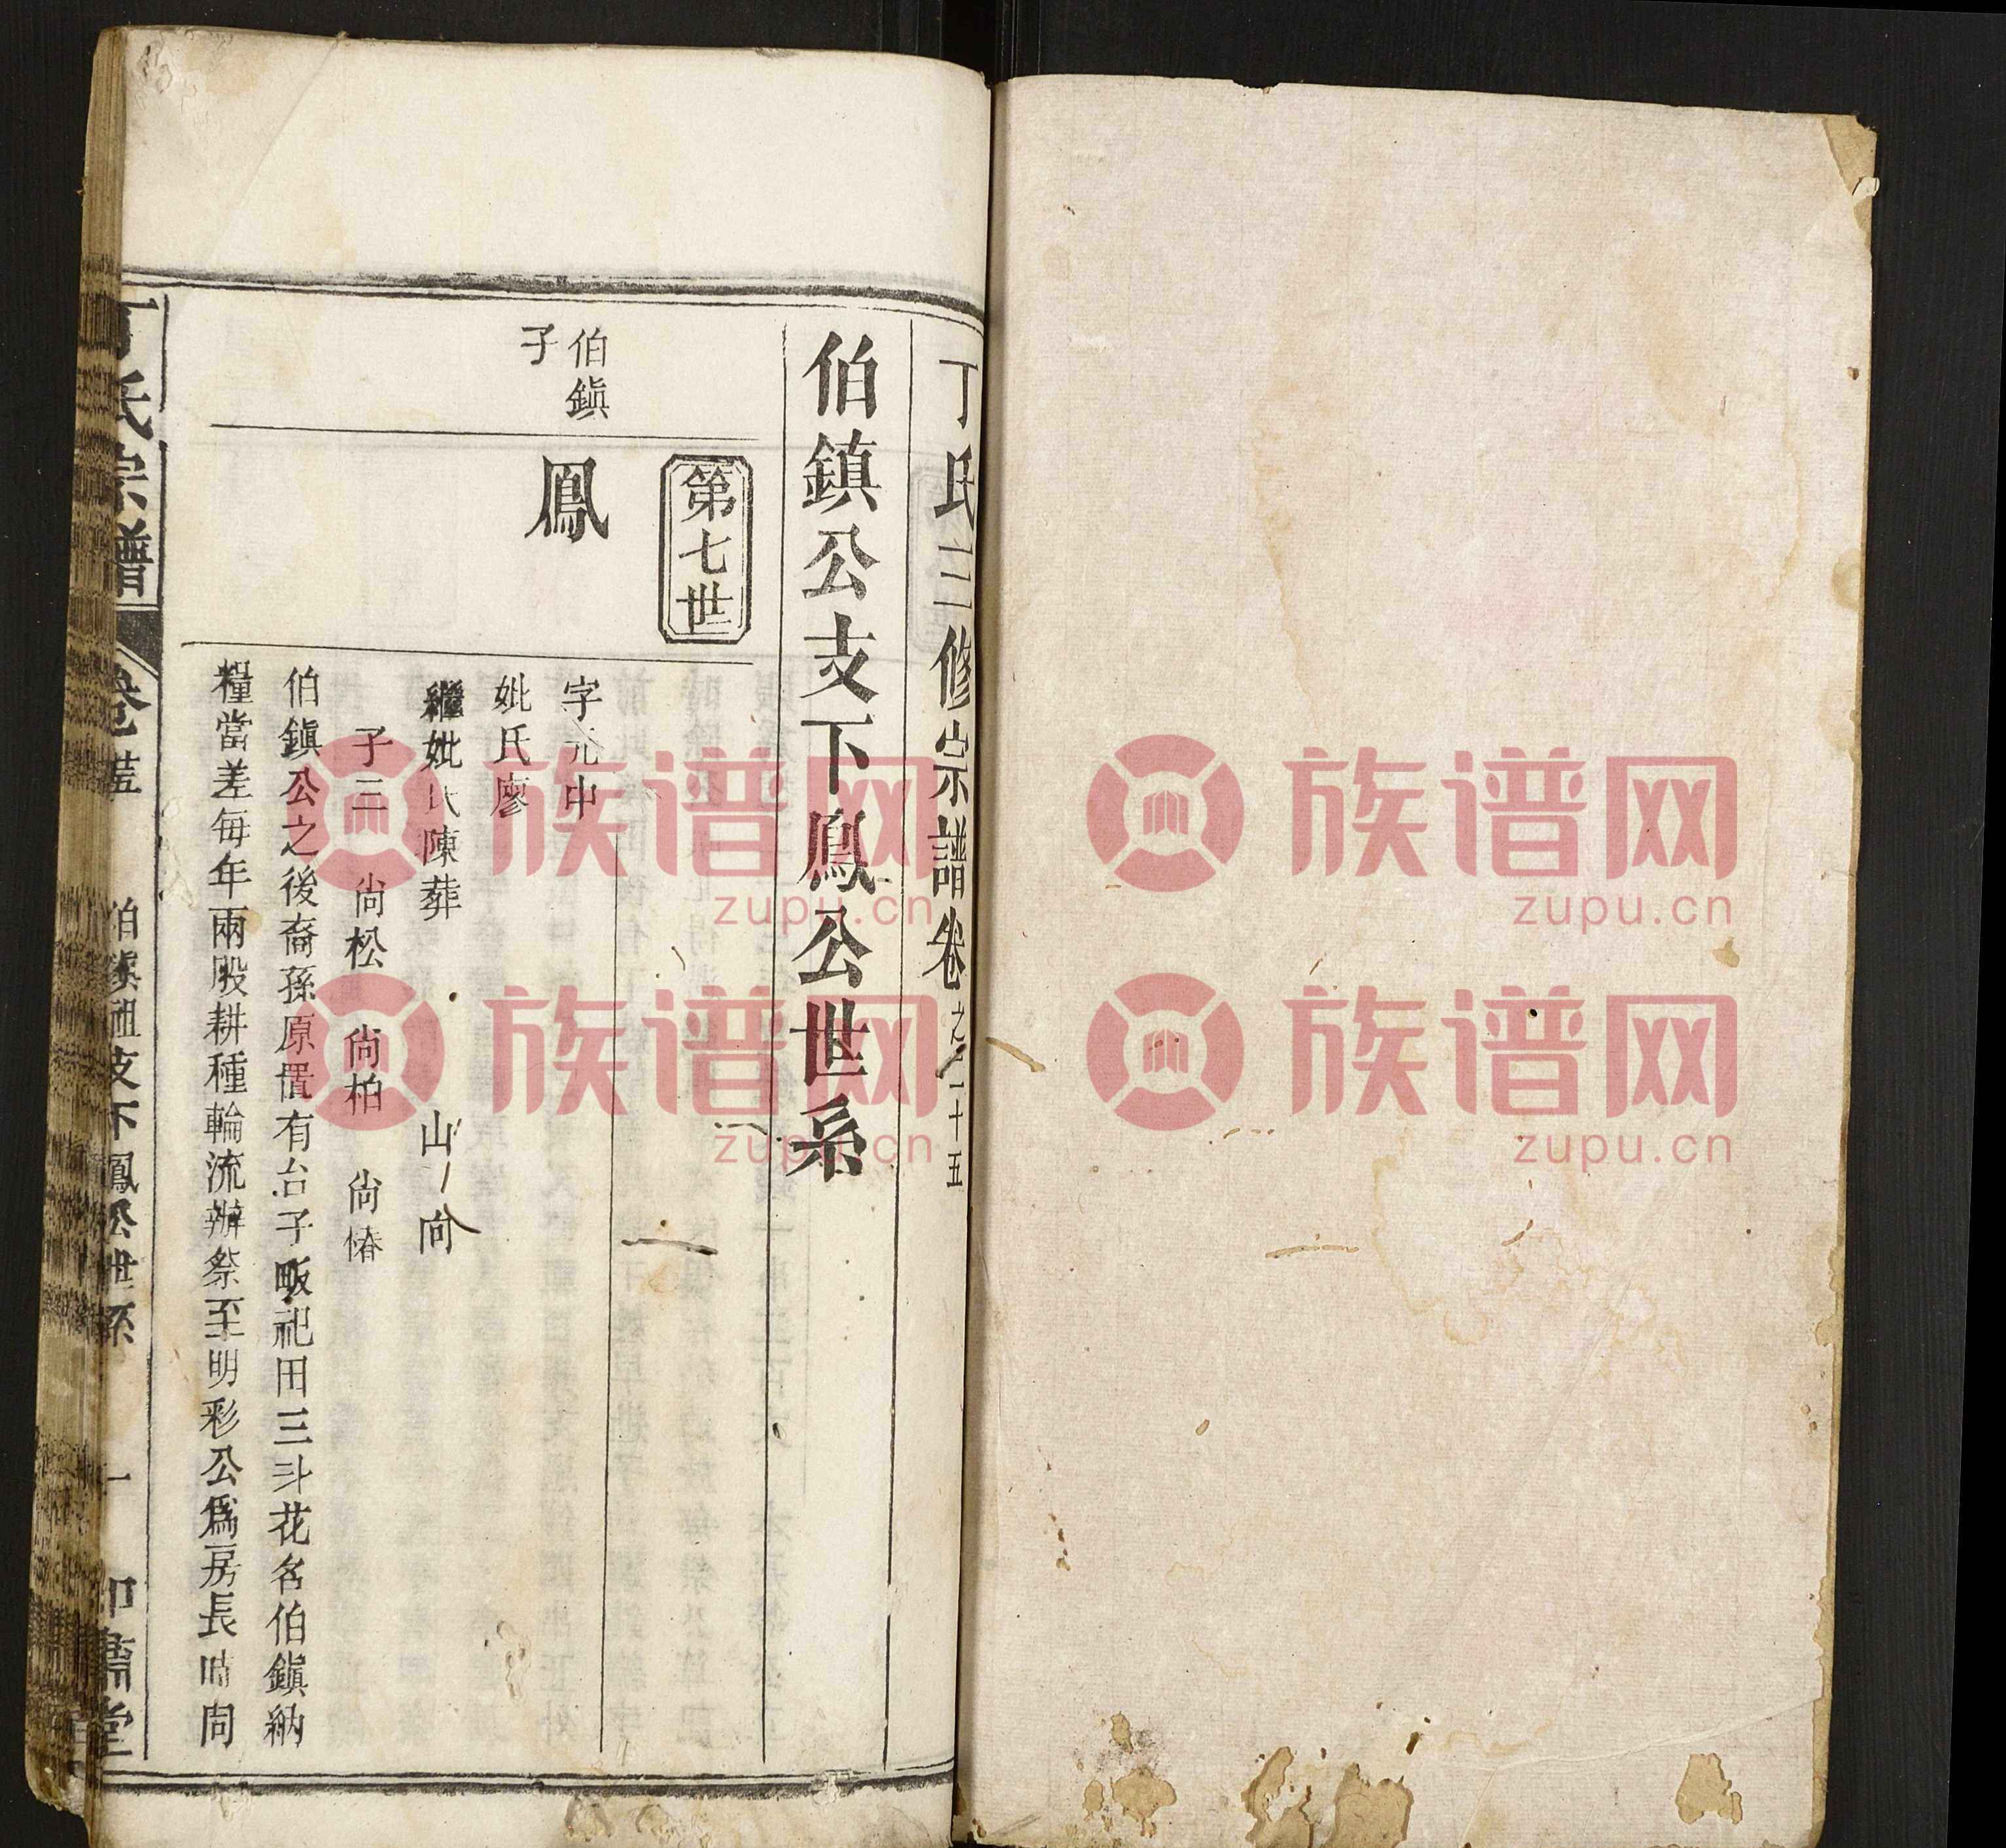 丁氏三修宗譜卷之二十五
伯鎮公支下鳳公世系
第七世
伯鎮
子
鳳
字元中
妣氏廖
繼妣氏陳葬 山 向
子三 尚松 尚柏 尚椿
伯鎮公之後裔孫原置有台子畈祀田三斗花名伯鎮納
糧當差每年兩股耕種輪流辦祭至明彩公為房長時問
丁氏宗譜
伯鎮祖支下鳳公世系
一
族谱网
zupu.cn
族谱网
zupu.cn
族谱网
zupu.cn
族谱网
zupu.cn